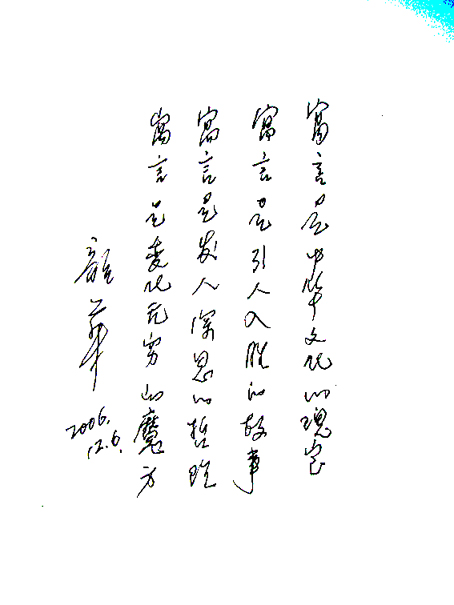 寓言是中华文化的瑰宝
寓言是引人入胜的故事
寓言是发人深思的哲理
寓言是变化无穷的魔方
2006.
12.6.